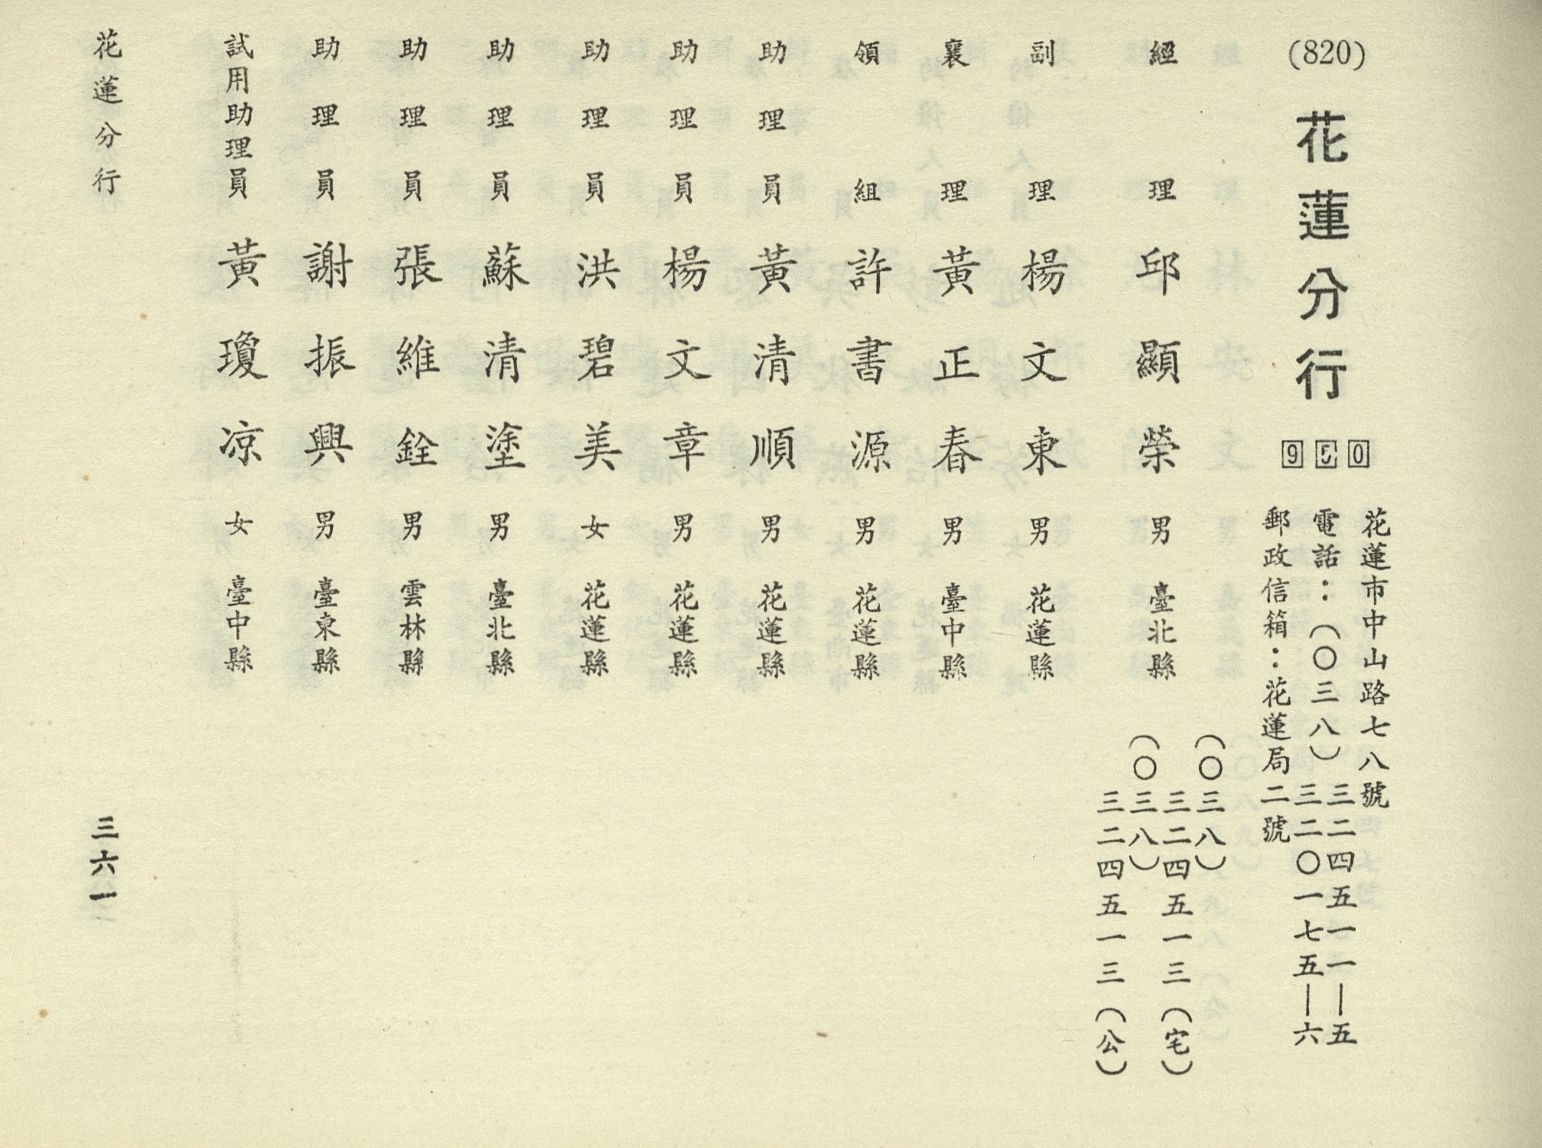 (820)
花蓮分行
970
花蓮市中山路七八號
電話：（〇三八）三二四五一一—五
三二〇一七五—六
郵政信箱：花蓮局二號
經理 邱顯榮 男 臺北縣
（〇三八）三二四五一三（宅）
（〇三八）三二四五一三（公）
副理 楊文東 男 花蓮縣
襄理 黃正春 男 臺中縣
領組 許書源 男 花蓮縣
助理員 黃清順 男 花蓮縣
助理員 楊文章 男 花蓮縣
助理員 洪碧美 女 花蓮縣
助理員 蘇清塗 男 臺北縣
助理員 張維銓 男 雲林縣
助理員 謝振興 男 臺東縣
試用助理員 黃瓊凉 女 臺中縣
花蓮分行
三六一